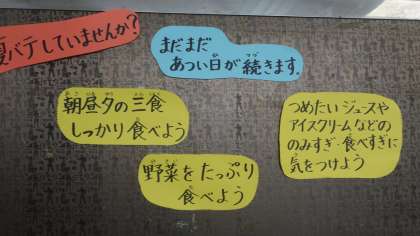 夏バテしていませんか?
まだまだ
あつい日が続きます。
朝昼夕の三食
しっかり食べよう
野菜をたっぷり
食べよう
つめたいジュースや
アイスクリームなどの
のみすぎ・食べすぎに
気をつけよう